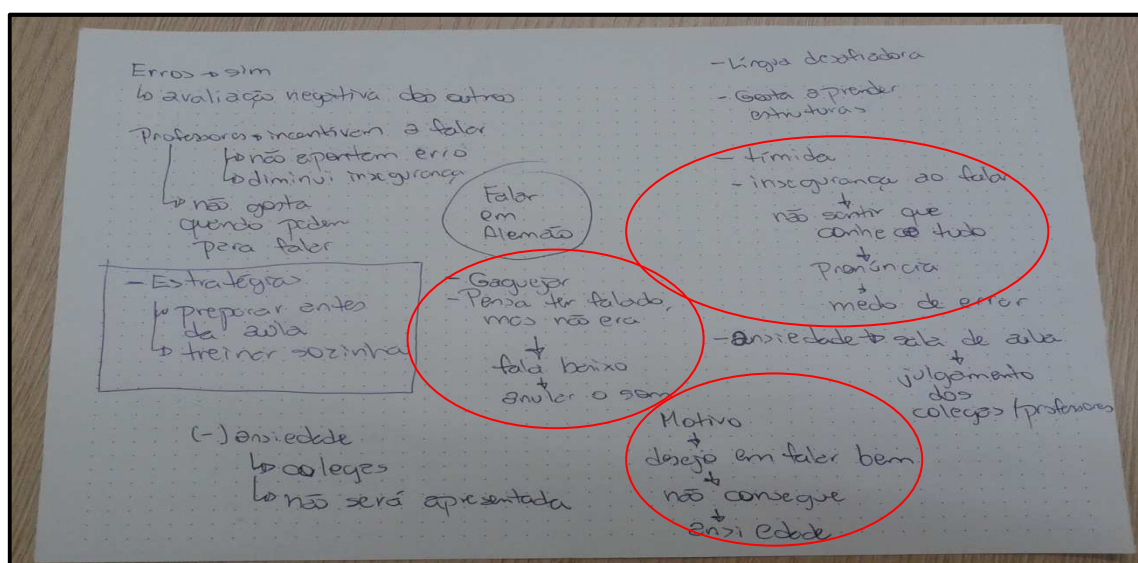 Erros → sim
↳ avaliação negativa dos outros
Professores → incentivem a falar
↳ não apontem erro
↳ diminui insegurança
↳ não gosta
quando pedem
para falar
- Estratégias
↳ preparar antes
da aula
↳ treinar sozinha
(-) ansiedade
↳ colegas
↳ não será apresentada
Falar
em
Alemão
- Gaguejar
- Pensa ter falado,
mas não era
↓
fala baixo
↓
anular o som
- Língua desafiadora
- Gosta aprender
estruturas
- tímida
- insegurança ao falar
↓
não sentir que
conhece tudo
↓
Pronúncia
↓
medo de errar
- ansiedade → sala de aula
↓
julgamento
dos
colegas/professores
Motivo
↓
desejo em falar bem
↓
não consegue
↓
ansiedade